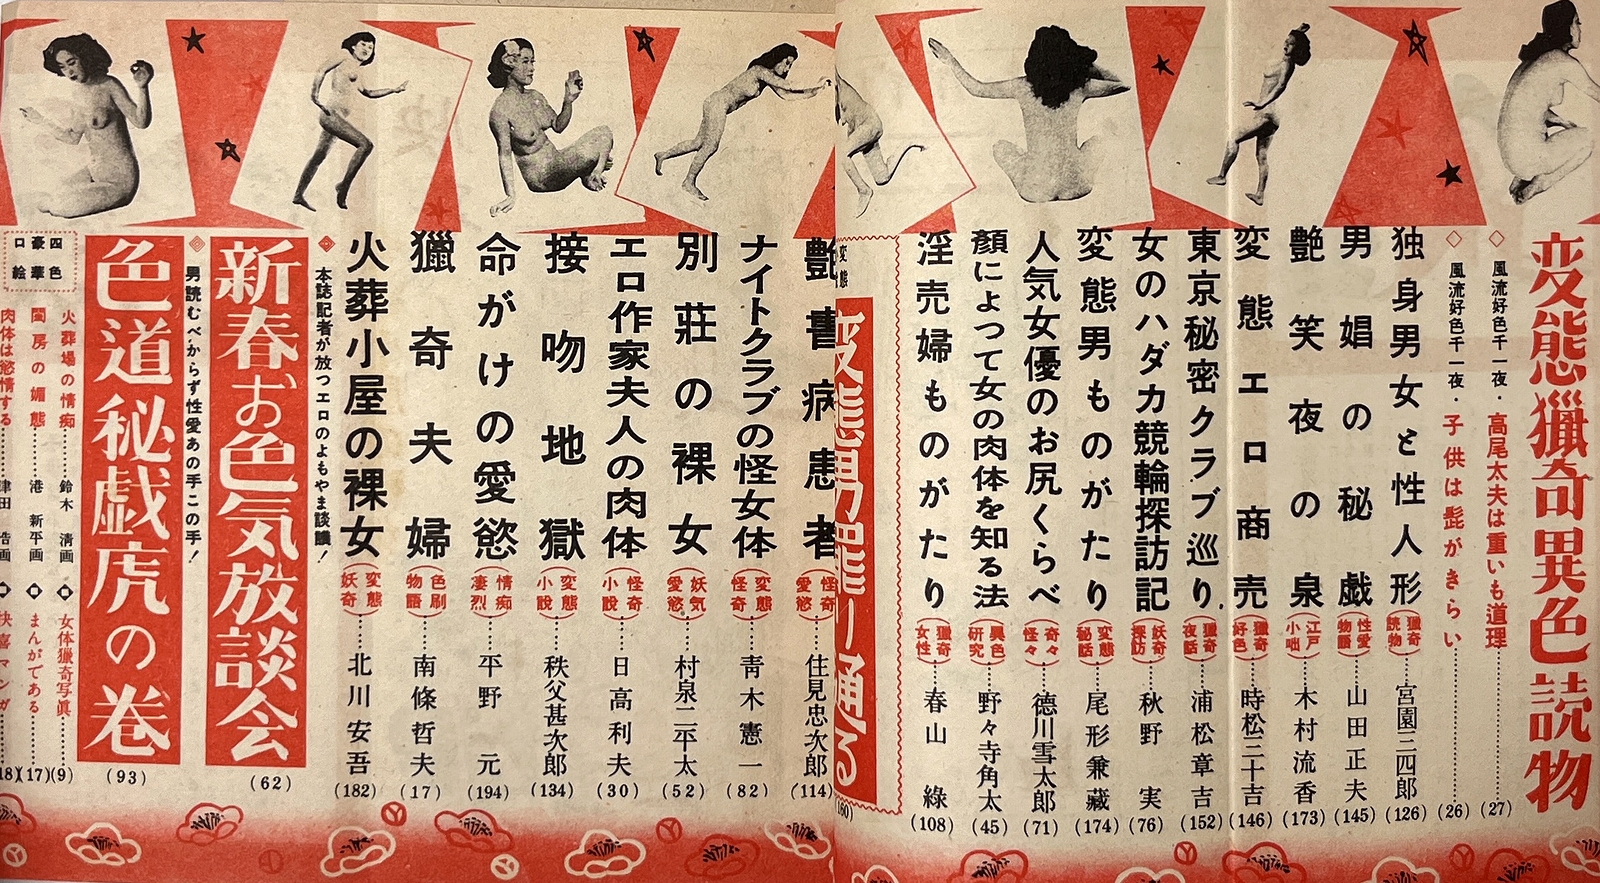 変態獵奇異色読物
風流好色千一夜・高尾太夫は重いも道理 (27)
風流好色千一夜・子供は髭がきらい (26)
独身男女と性人形 (獵奇読物) 宮園三四郎 (126)
男娼の秘戯 (性愛物語) 山田正夫 (145)
艶笑夜の泉 (江戸小咄) 木村流香 (173)
変態エロ商売 (獵奇好色) 時松三十吉 (146)
東京秘密クラブ巡り (獵奇夜話) 浦松章吉 (152)
女のハダカ競輪探訪記 (妖奇探訪) 秋野実 (76)
変態男ものがたり (変態秘話) 尾形兼藏 (174)
人気女優のお尻くらべ (奇々怪々) 徳川雪太郎 (71)
顔によつて女の肉体を知る法 (異色研究) 野々寺角太 (45)
淫売婦ものがたり (獵奇女性) 春山綠 (108)
変態
通る
(160)
艶書病患者 (怪奇愛慾) 住見忠次郎 (114)
ナイトクラブの怪女体 (変態怪奇) 靑木憲一 (82)
別莊の裸女 (妖気愛慾) 村泉二平太 (52)
エロ作家夫人の肉体 (怪奇小說) 日高利夫 (30)
接吻地獄 (変態小說) 秩父甚次郎 (134)
命がけの愛慾 (情痴凄烈) 平野元 (194)
獵奇夫婦 (色刷物語) 南條哲夫 (17)
火葬小屋の裸女 (変態妖奇) 北川安吾 (182)
本誌記者が放つエロのよもやま談議！
新春お色気放談会 (62)
男読むべからず性愛あの手この手！
色道秘戯虎の巻 (93)
四色豪華口絵
火葬場の情痴 鈴木清画 女体獵奇写眞 (9)
閨房の媚態 港新平画 まんがである (17)
肉体は慾情する 津田浩画 マンガ 18)